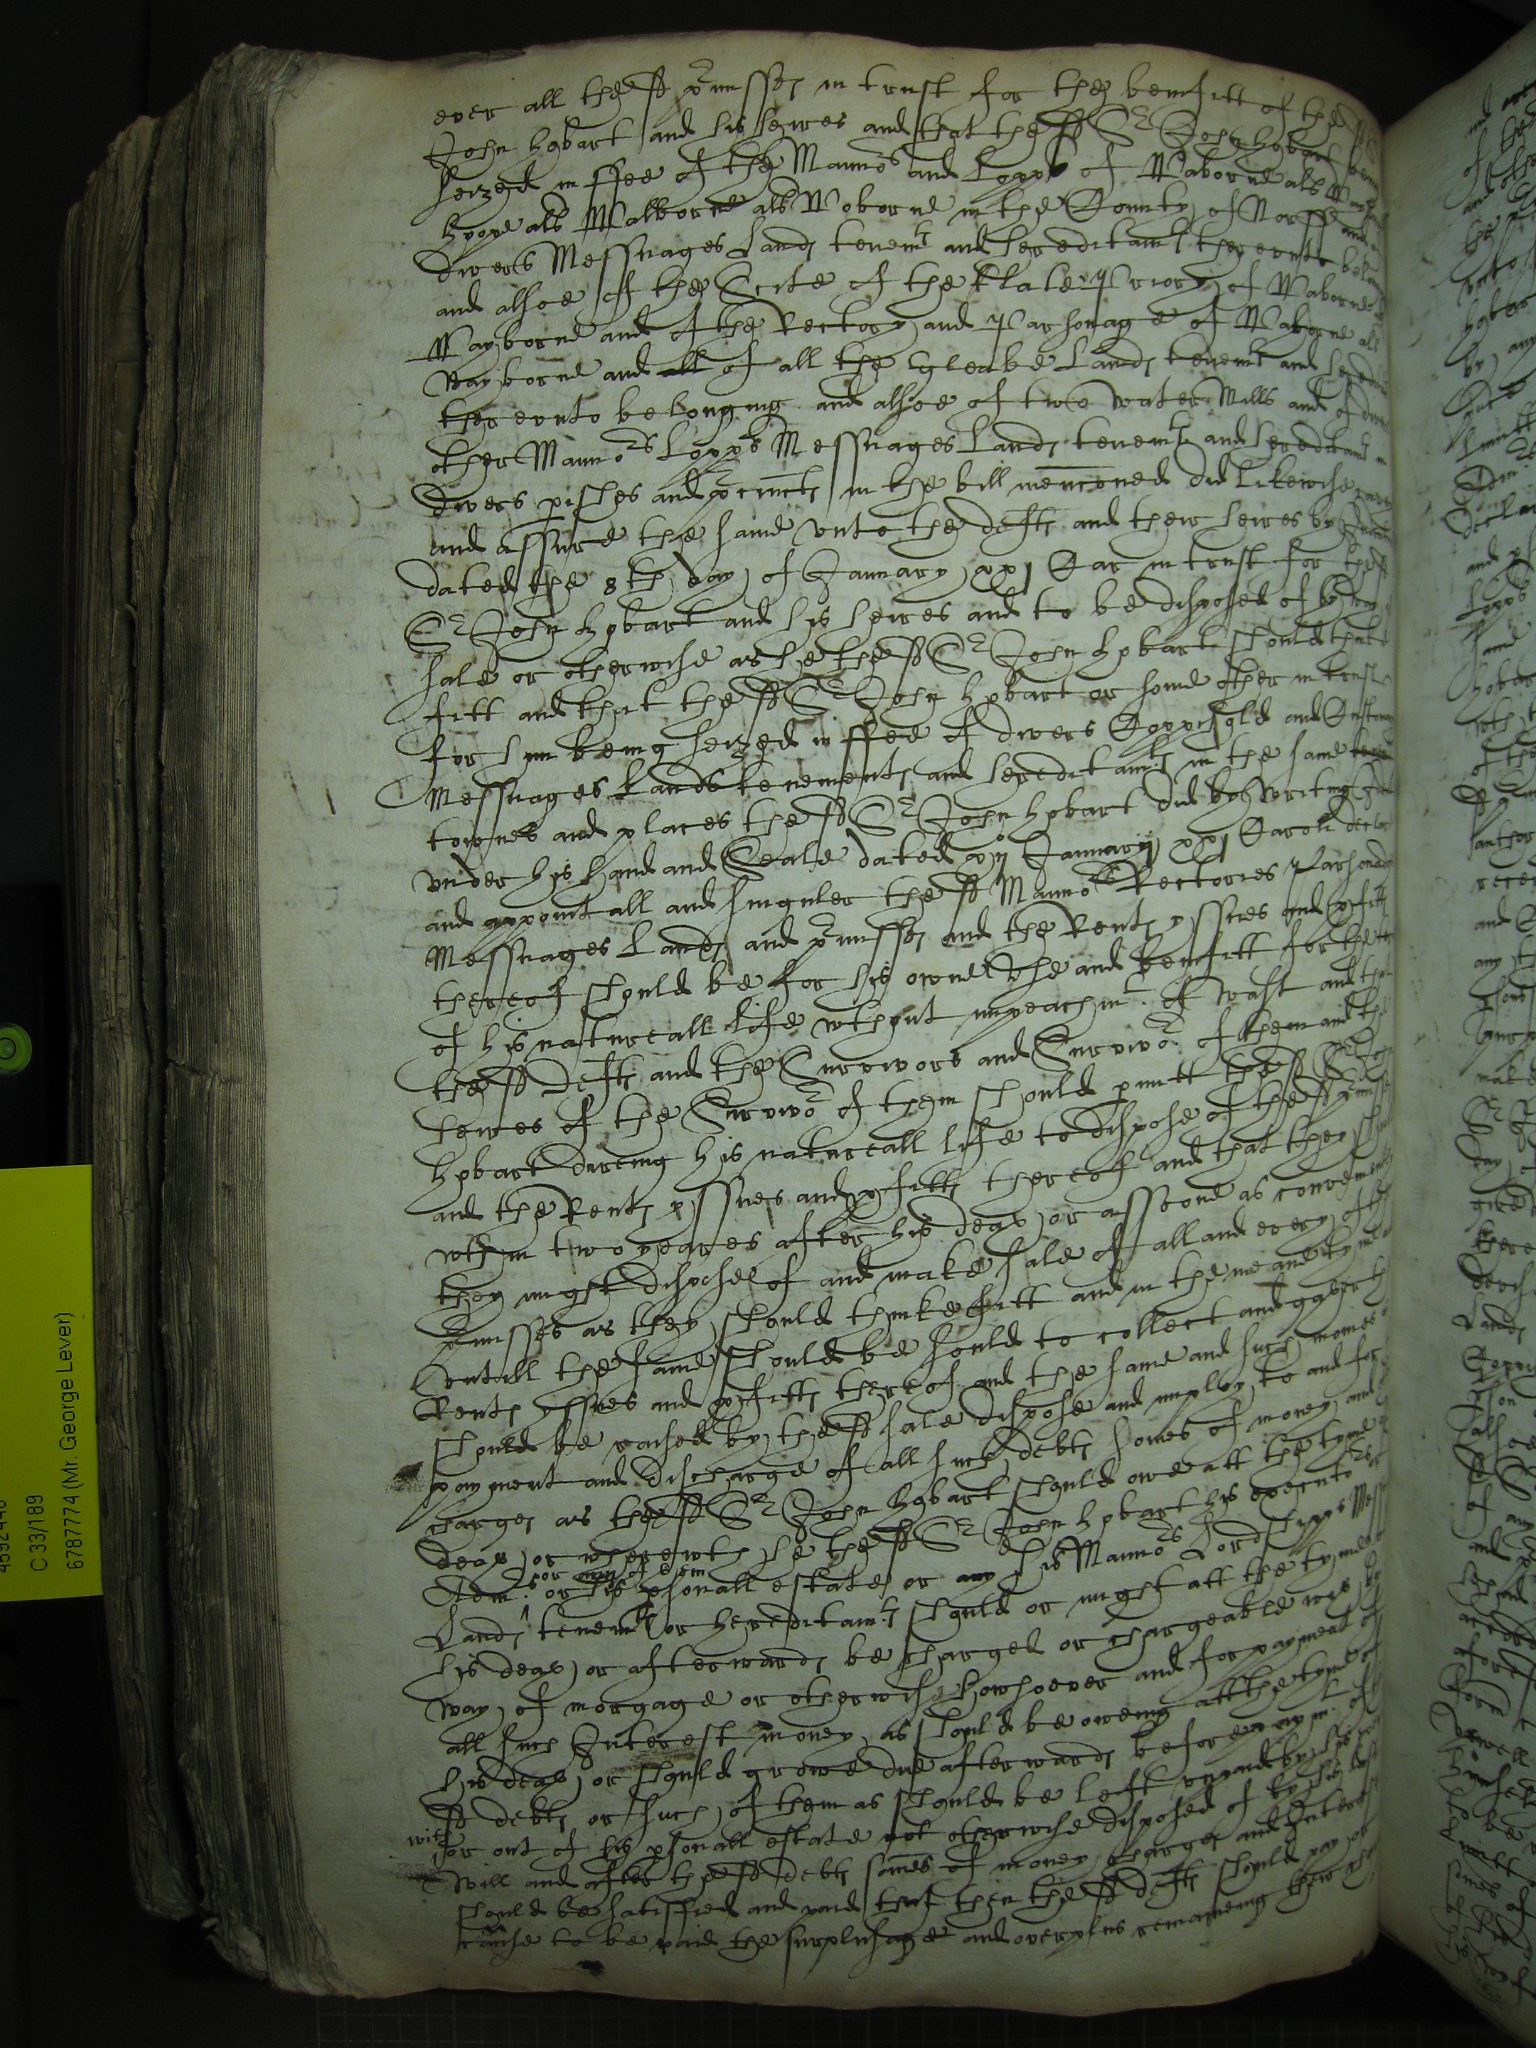 ever all the sd pmisses in trust for the benefitt of the sd Sr
John Hobart and his heires and that the sd Sr John Hobart being
seized in ffee of the Mannor and Lopp of Waborne als
hope als Walborne als Woborne in the County of Norff and
divers Messuages Lands tenemts and hereditamts thereunto belong
and alsoe of the Scite of the late Priory of Waborne
Wayborne and of the Rectory and Parsonage of Waborne als
Wayborne and all of all the Gleabe Lands tenemts and
thereunto belonging and alsoe of two water Mills and of divers
other Mannors Lopps Messuages Lands tenemts and hereditamts in
divers pishes and pcincts in the bill menconed did likewise
and assure the same unto the defts and their heires by
dated the 8th day of January xxj Car in trust for the sd
Sr John Hobart and his heires and to be disposed of by way
sale or otherwise as he the sd Sr John Hobart should thinke
fitt and that the sd Sr John Hobart or some other in trust
for him being seized in ffee of divers Coppihold and Customary
Messuages Lands tenements and hereditamts in the same
townes and places the sd Sr John Hobart did by writing
under his hand and Seale dated January xxj Caroli declare
and appoint all and singuler the sd Mannors Rectories Parsonage
Messuages Lands and pmisses and the Rents yssues and pfitts
thereof should be for his owne use and benefitt for the
of his naturall life wthout impeachmt of wast and that
the sd defts and the Survivors and Survivor of them and the
heires of the Survivor of them should pmitt the sd Sr John
Hobart during his naturall life to dispose of the sd pmisses
and the Rents yssues and pfitts thereof and that they should
wthin two yeares after his death or assoone as convenienty
they might dispose of and make sale of all and every of the
pmisses as they should thinke fitt and in the meane tyme
untill the same should be sould to collect and gather the
Rents yssues and pfitts thereof and the same and such monies
should be raised by the sd sale dispose and imploy to and for
payment and discharge of all such debts somes of money and
charges as the sd Sr John Hobart should owe att the tyme
death or wherewth he the sd Sr John Hobart his executors
or any of them
Adm: or his psonall estate or any his Mannors Lordshipps Mess
Lands tenemts or hereditamts should or might att the tyme
his death or afterwards be charged or chargeable wth by
way of morgage or otherwise howsoever and for payment of
all such Interest money as should be oweing att the tyme of
his death or should growe due afterwards before paymt of
sd debts or such of them as should be left unpaid by his
or out of his psonall estate not otherwise disposed of by his last
will and after the sd debts somes of money charges and Interest
should be satisfied and paid that then the sd defts should pay or
cause to be paid the surplusage and overplus remaineing
4592440
C 33/189
6787774 (Mr. George Lever)